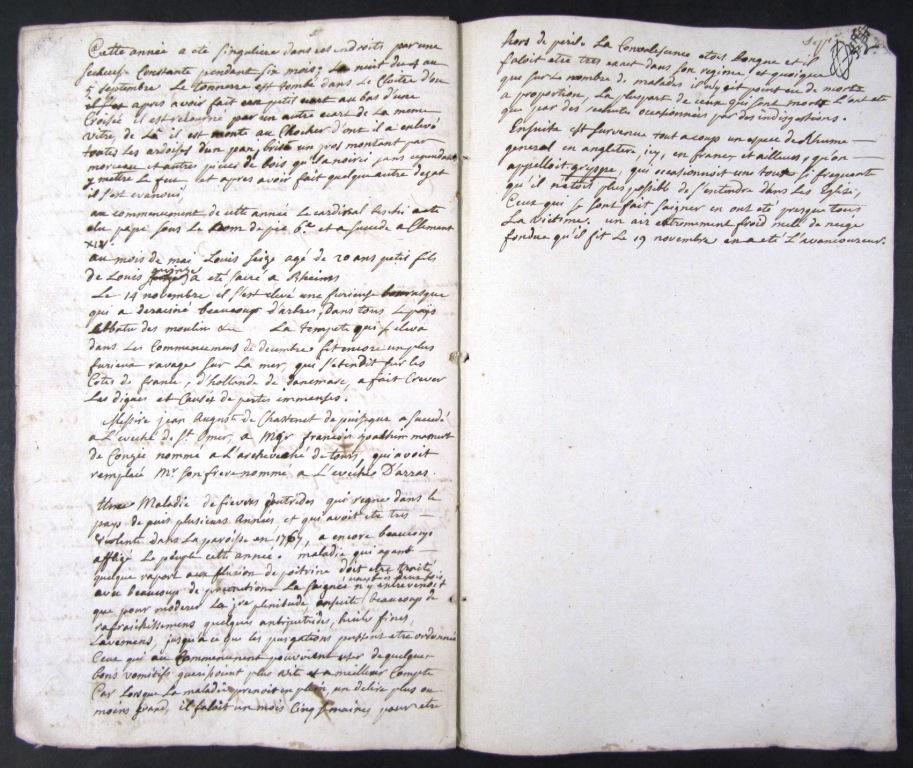 Cette année a été singuliere dans ces endroits par une
secheresse constante pendant six moiss. La nuit du 4 au
5 septembre le tonnerre est tombé dans le cloitre d'ou
il s'est apres avoir fait un petit ecart au bas d'une
croisée il est retourné par un autre ecart de la meme
vitre, de là il est monté au clocher d'ont il a enlevé
toutes les ardoises d'un pan, brisé un gros montant par
morceau et autres pieces de bois qu'il a noirci sans cependant
y metre le feu et apres avoir fait quelque autre degat
il s'est evanoui
au commencement de cette année le cardinal Braschi a été
élu pape sous le nom de pie 6.e et a succedé a Clement
XIV.
au mois de mai Louis Seize agé de 20 ans petit fils
de Louis quinze a eté sacré a Rheims
Le 14 novembre il s'est elevé une furieuse bourasque
qui a deraciné beaucoup d'arbres, dans tous le païs
abbatu des moulin &c La tempete qui s'eleva
dans les commencemens de decembre fit encore un plus
furieux ravage sur la mer, qui s'etendit sur les
Cotes de france, d'hollande de danemarc, a fait crever
les digues et causée de pertes immenses.
Messire jean Auguste de Chastenet de puisegur a succedé
a L'eveché de St Omer, a Mgr francois joachim mamert
de Conzié nommé a L'archeveché de tours, qui avoit
remplacé Mr son frere nommé a L'eveché D'arras.
Une Maladie de fievres putrides qui regne dans le
pays de puis plusieurs Années et qui avoit ete tres
violente dans La paroisse en 1767, a encore beaucoup
affligé Le peuple cette année. maladie qui ayant
quelque raport aux flusion de poitrine doit etre traité
avec beaucoup de precautions La saignee n'y entrevenoit
que pour moderer La 1re plenitude ensuite beaucoup de
rafraichissemens quelques antiputrides, huile fines,
Lavemens, jusqu'a ce que les purgations pussent etre ordonnée
Ceux qui au commencement pouvoient user de quelque
bons vomitifs guerissoient plus vite et a meilleur compte
Car Lorsque La maladie prenoit en plein, un delire plus ou
moins grand, il faloit un mois Cinq semaines pour etre
hors de peril. La Convalescence etoit Longue et il
faloit etre tres exact dans son regime et quoique
que sur le nombre de malades il n'y ait point eu de morts
a proportion. La plupart de ceux qui sont morts L'ont eté
que par des rechutes occasionnées par des indigestions.
Ensuite est survenue tout a coup un espece de Rhume
general en angleterre, icy, en france, et ailleurs, qu'on
appelloit grippe, qui occasionnoit une toux si frequente
qu'il n'etoit plus possible de s'entendre dans Les Eglises,
Ceux qui se sont fait saigner en ont eté presque tous
La victime, un air extremement froid melé de neige
fondue qu'il fit Le 19 novembre en a eté L'avancoureur.